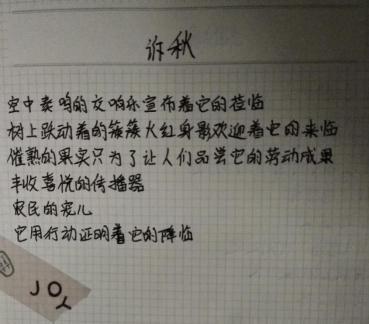 诉秋
空中奏鸣的交响乐宣布着它的莅临
树上跃动着的簇簇火红身影欢迎着它的来临
催熟的果实只为了让人们品尝它的劳动成果
丰收喜悦的传播器
农民的宠儿
它用行动证明着它的降临
JOY